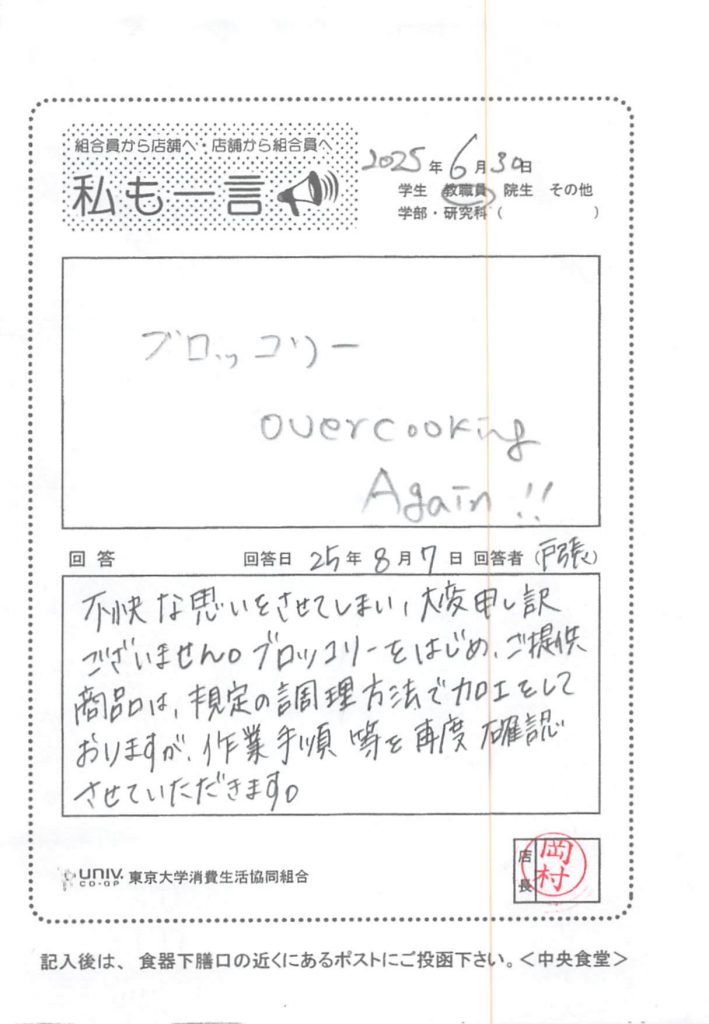 組合員から店舗へ・店舗から組合員へ
私も一言
2025年6月30日
学生 教職員 院生 その他
学部・研究科( )
ブロッコリー
overcooking
Again!!
回答 回答日 25年8月7日 回答者(戸張)
不快な思いをさせてしまい、大変申し訳
ございません。ブロッコリーをはじめ、ご提供
商品は、規定の調理方法で加工をして
おりますが、作業手順等を再度確認
させていただきます。
店長 岡村
UNIV. CO-OP 東京大学消費生活協同組合
記入後は、食器下膳口の近くにあるポストにご投函下さい。<中央食堂>